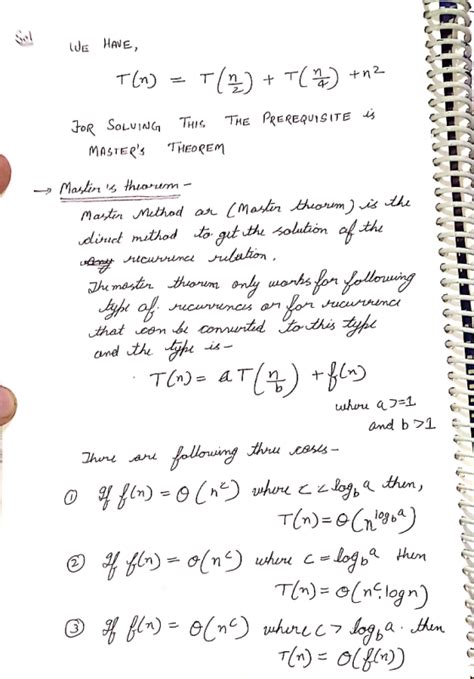 Sol
WE HAVE,
T(n) = T(n/2) + T(n/4) + n²
FOR SOLVING THIS THE PREREQUISITE is
MASTER'S THEOREM
→ Master's theorem –
Master Method or (Master theorem) is the
direct method to get the solution of the
recurrence relation.
The master theorem only works for following
type of recurrences or for recurrence
that can be converted to this type
and the type is –
T(n) = a T(n/b) + f(n)
where a >= 1
and b > 1
There are following three cases –
① If f(n) = Θ(n^c) where c < log_b a then,
T(n) = Θ(n^(log_b a))
② If f(n) = Θ(n^c) where c = log_b a then
T(n) = Θ(n^c. log n)
③ If f(n) = Θ(n^c) where c > log_b a. then
T(n) = Θ(f(n))